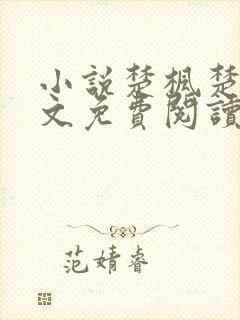 小說楚楓楚
文免費閱讀
范婧睿